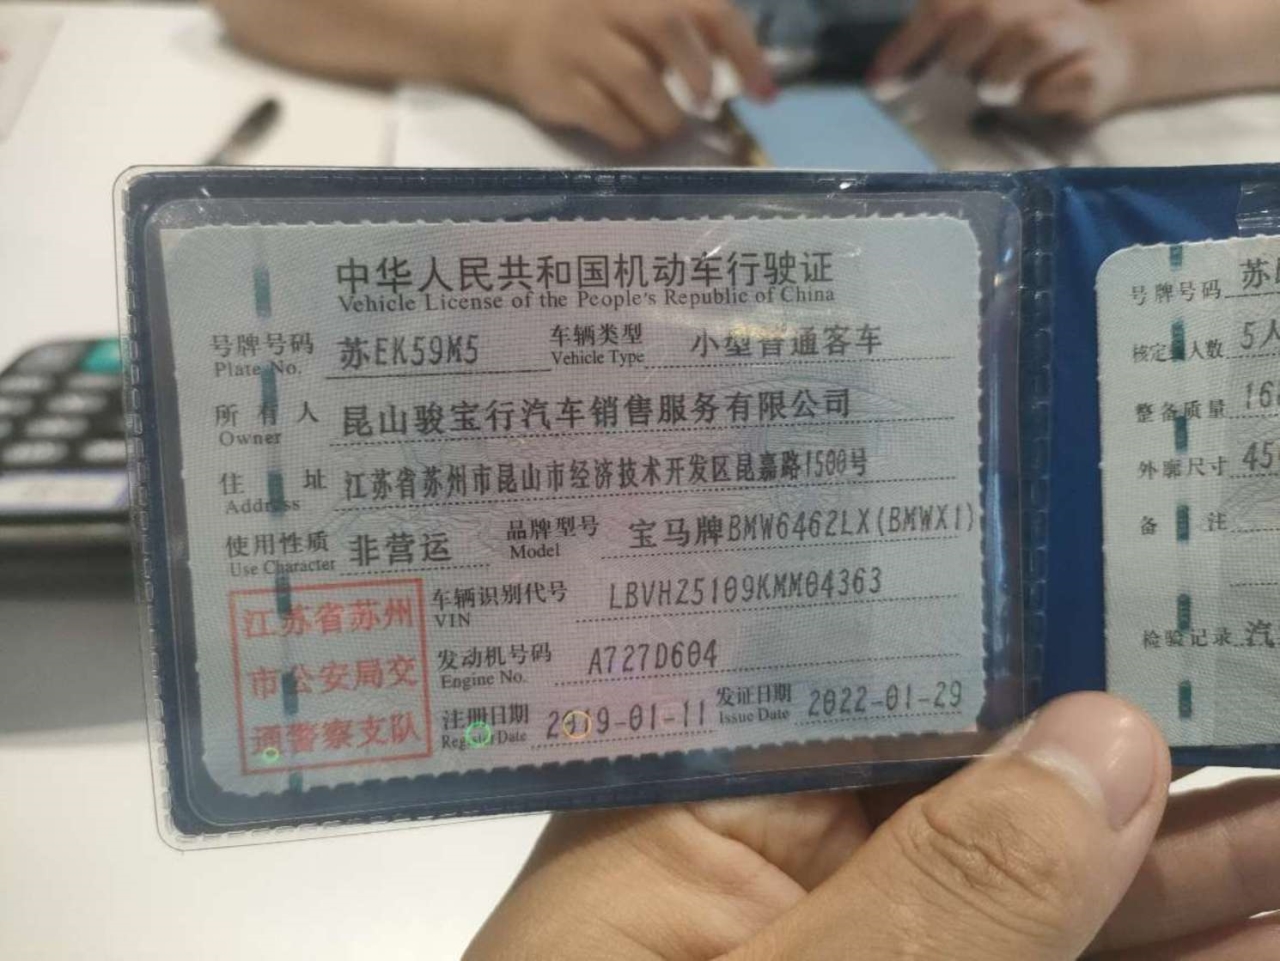 中华人民共和国机动车行驶证
Vehicle License of the People's Republic of China
号牌号码 苏EK59M5 车辆类型 小型普通客车
Plate No. Vehicle Type
所有人 昆山骏宝行汽车销售服务有限公司
Owner
住址 江苏省苏州市昆山市经济技术开发区昆嘉路1500号
Address
使用性质 非营运 品牌型号 宝马牌BMW6462LX(BMWX1)
Use Character Model
江苏省苏州
市公安局交
通警察支队
车辆识别代号 LBVHZ5109KMM04363
VIN
发动机号码 A727D604
Engine No.
注册日期 2019-01-11 发证日期 2022-01-29
Register Date Issue Date
号牌号码 苏
核定人数 5人
整备质量 16
外廓尺寸 45
备注
检验记录 汽